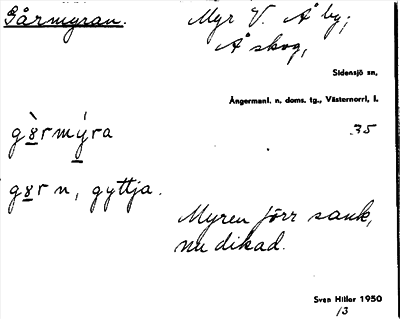 Gårmyran.
Myr V. Å by;
Å skog,
Sidensjö sn,
Ångermanl. n. doms. tg., Västernorrl. l.
35
gàrmýra
gar n, gyttja.
Myren förr sank,
nu dikad.
Sven Hiller 1950
13